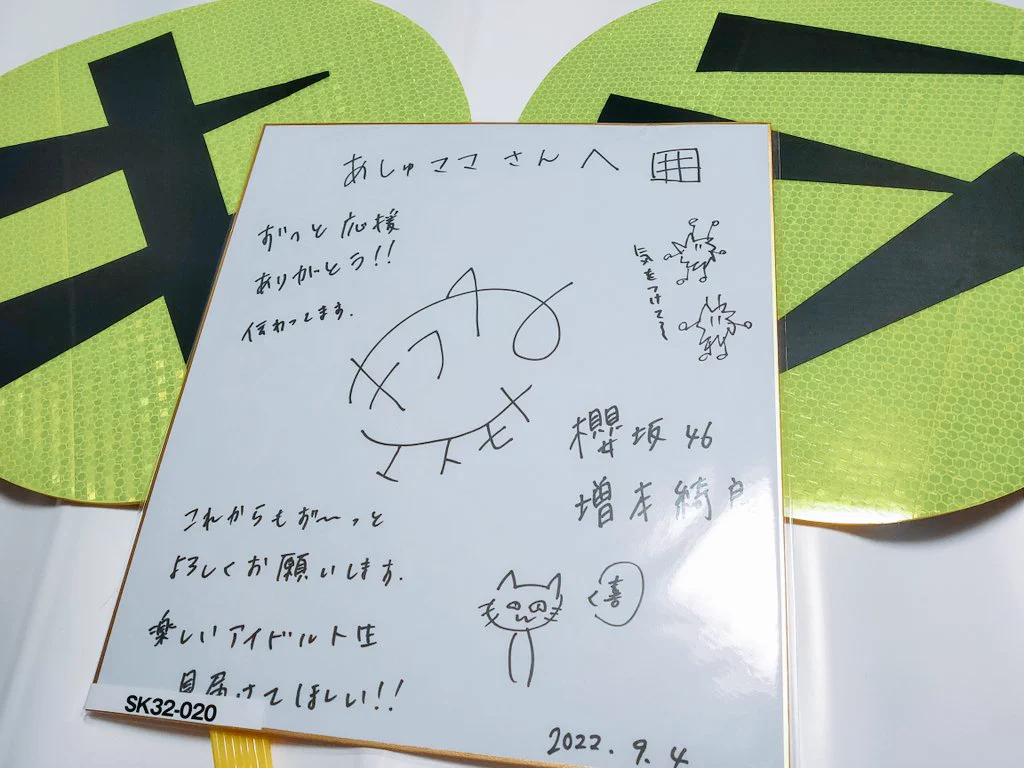 あしゅママさんへ
ずっと応援
ありがとう!!
伝わってます.
気をつけて〜
櫻坂46
増本綺良
これからもず〜っと
よろしくお願いします.
喜
楽しいアイドル人生
見届けてほしい!!
SK32-020
2022.9.4